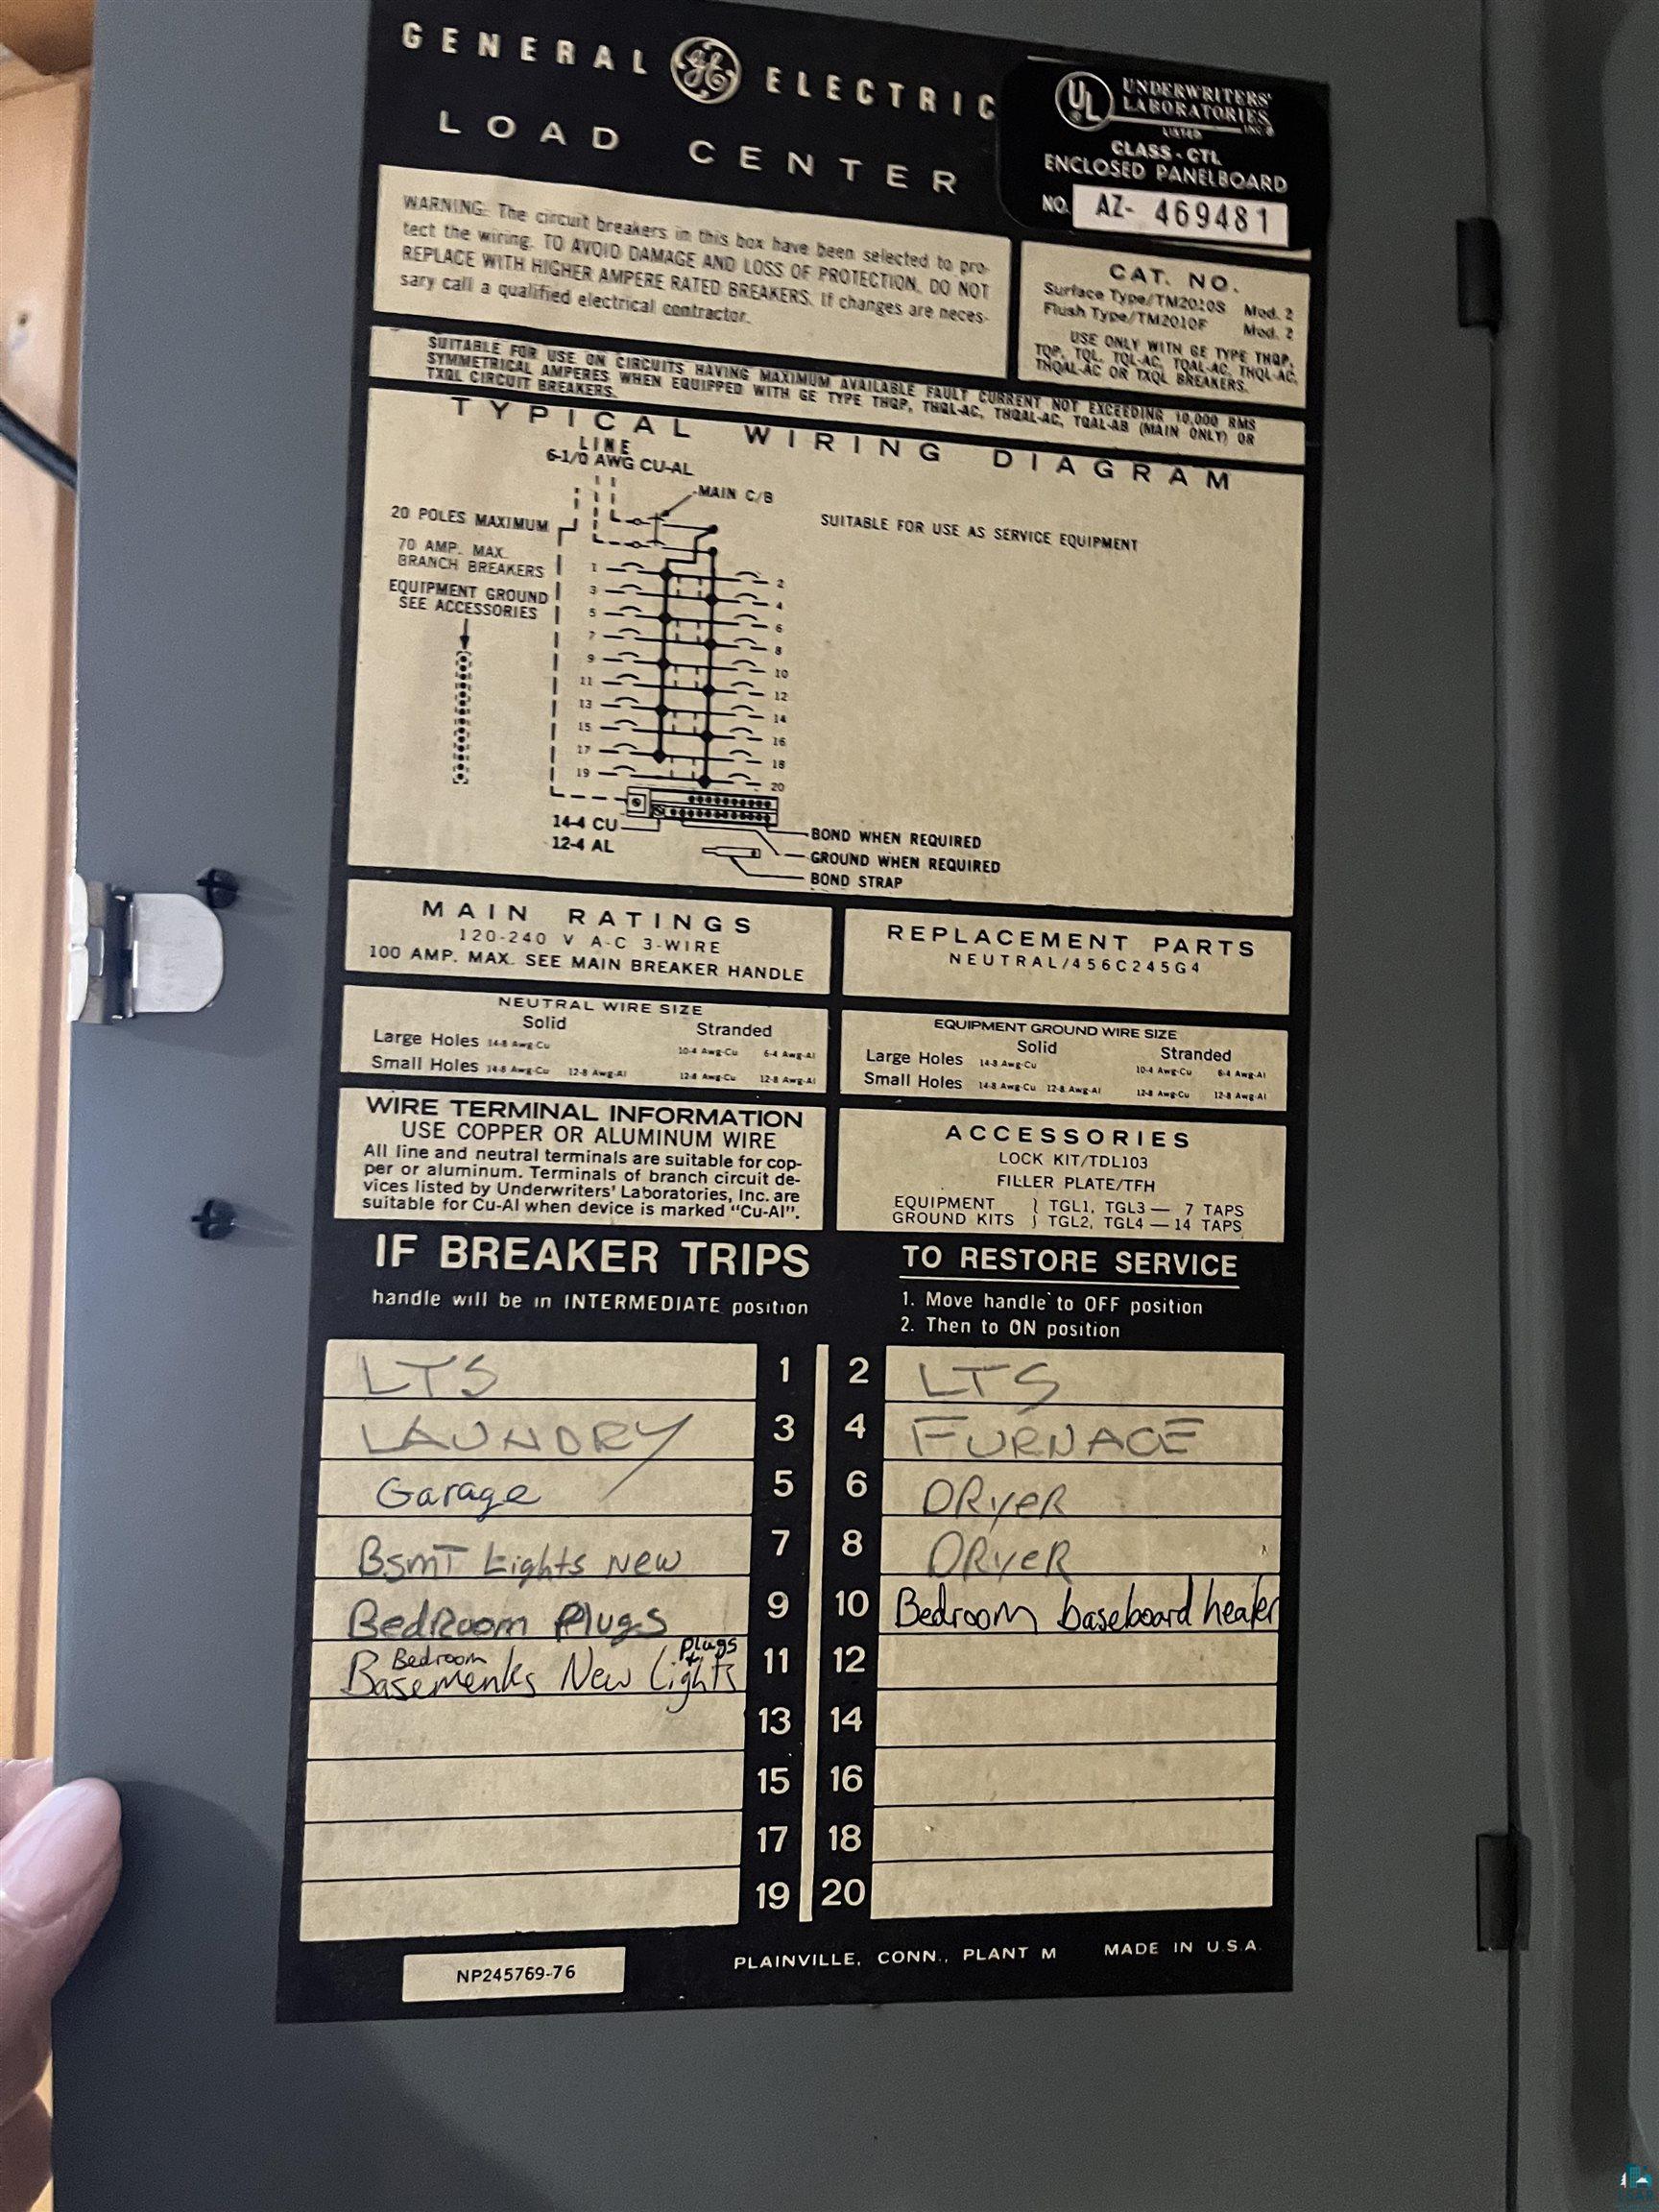 GENERAL GE ELECTRIC
LOAD CENTER
UL UNDERWRITERS'
LABORATORIES,
INC.®
LISTED
CLASS - CTL
ENCLOSED PANELBOARD
NO. AZ- 469481
WARNING: The circuit breakers in this box have been selected to pro-
tect the wiring. TO AVOID DAMAGE AND LOSS OF PROTECTION, DO NOT
REPLACE WITH HIGHER AMPERE RATED BREAKERS. If changes are neces-
sary call a qualified electrical contractor.
CAT. NO.
Surface Type/TM2010S Mod. 2
Flush Type/TM2010F Mod. 2
USE ONLY WITH GE TYPE THQP,
TQP, TQL, TQL-AC, TQAL-AC, THQL-AC,
THQAL-AC OR TXQL BREAKERS.
SUITABLE FOR USE ON CIRCUITS HAVING MAXIMUM AVAILABLE FAULT CURRENT NOT EXCEEDING 10,000 RMS
SYMMETRICAL AMPERES WHEN EQUIPPED WITH GE TYPE THQP, THQL-AC, THQAL-AC, TQAL-AB (MAIN ONLY) OR
TXQL CIRCUIT BREAKERS.
TYPICAL WIRING DIAGRAM
LINE
6-1/0 AWG CU-AL
MAIN C/B
20 POLES MAXIMUM
SUITABLE FOR USE AS SERVICE EQUIPMENT
70 AMP. MAX.
BRANCH BREAKERS
EQUIPMENT GROUND
SEE ACCESSORIES
1 2
3 4
5 6
7 8
9 10
11 12
13 14
15 16
17 18
19 20
14-4 CU
12-4 AL
BOND WHEN REQUIRED
GROUND WHEN REQUIRED
BOND STRAP
MAIN RATINGS
120-240 V A-C 3-WIRE
100 AMP. MAX. SEE MAIN BREAKER HANDLE
REPLACEMENT PARTS
NEUTRAL/456C245G4
NEUTRAL WIRE SIZE
Solid Stranded
Large Holes 14-8 Awg-Cu 10-4 Awg-Cu 6-4 Awg-Al
Small Holes 14-8 Awg-Cu 12-8 Awg-Al 12-8 Awg-Cu 12-8 Awg-Al
EQUIPMENT GROUND WIRE SIZE
Solid Stranded
Large Holes 14-8 Awg-Cu 10-4 Awg-Cu 6-4 Awg-Al
Small Holes 14-8 Awg-Cu 12-8 Awg-Al 12-8 Awg-Cu 12-8 Awg-Al
WIRE TERMINAL INFORMATION
USE COPPER OR ALUMINUM WIRE
All line and neutral terminals are suitable for cop-
per or aluminum. Terminals of branch circuit de-
vices listed by Underwriters' Laboratories, Inc. are
suitable for Cu-Al when device is marked "Cu-Al".
ACCESSORIES
LOCK KIT/TDL103
FILLER PLATE/TFH
EQUIPMENT } TGL1, TGL3 — 7 TAPS
GROUND KITS } TGL2, TGL4 — 14 TAPS
IF BREAKER TRIPS
handle will be in INTERMEDIATE position
TO RESTORE SERVICE
1. Move handle to OFF position
2. Then to ON position
LTS 1 2 LTS
LAUNDRY 3 4 FURNACE
Garage 5 6 DRYER
BsmT Lights New 7 8 DRYER
BedRoom Plugs 9 10 Bedroom baseboard heater
Bedroom plugs +
Basements New Lights 11 12
13 14
15 16
17 18
19 20
NP245769-76
PLAINVILLE, CONN., PLANT M MADE IN U.S.A.